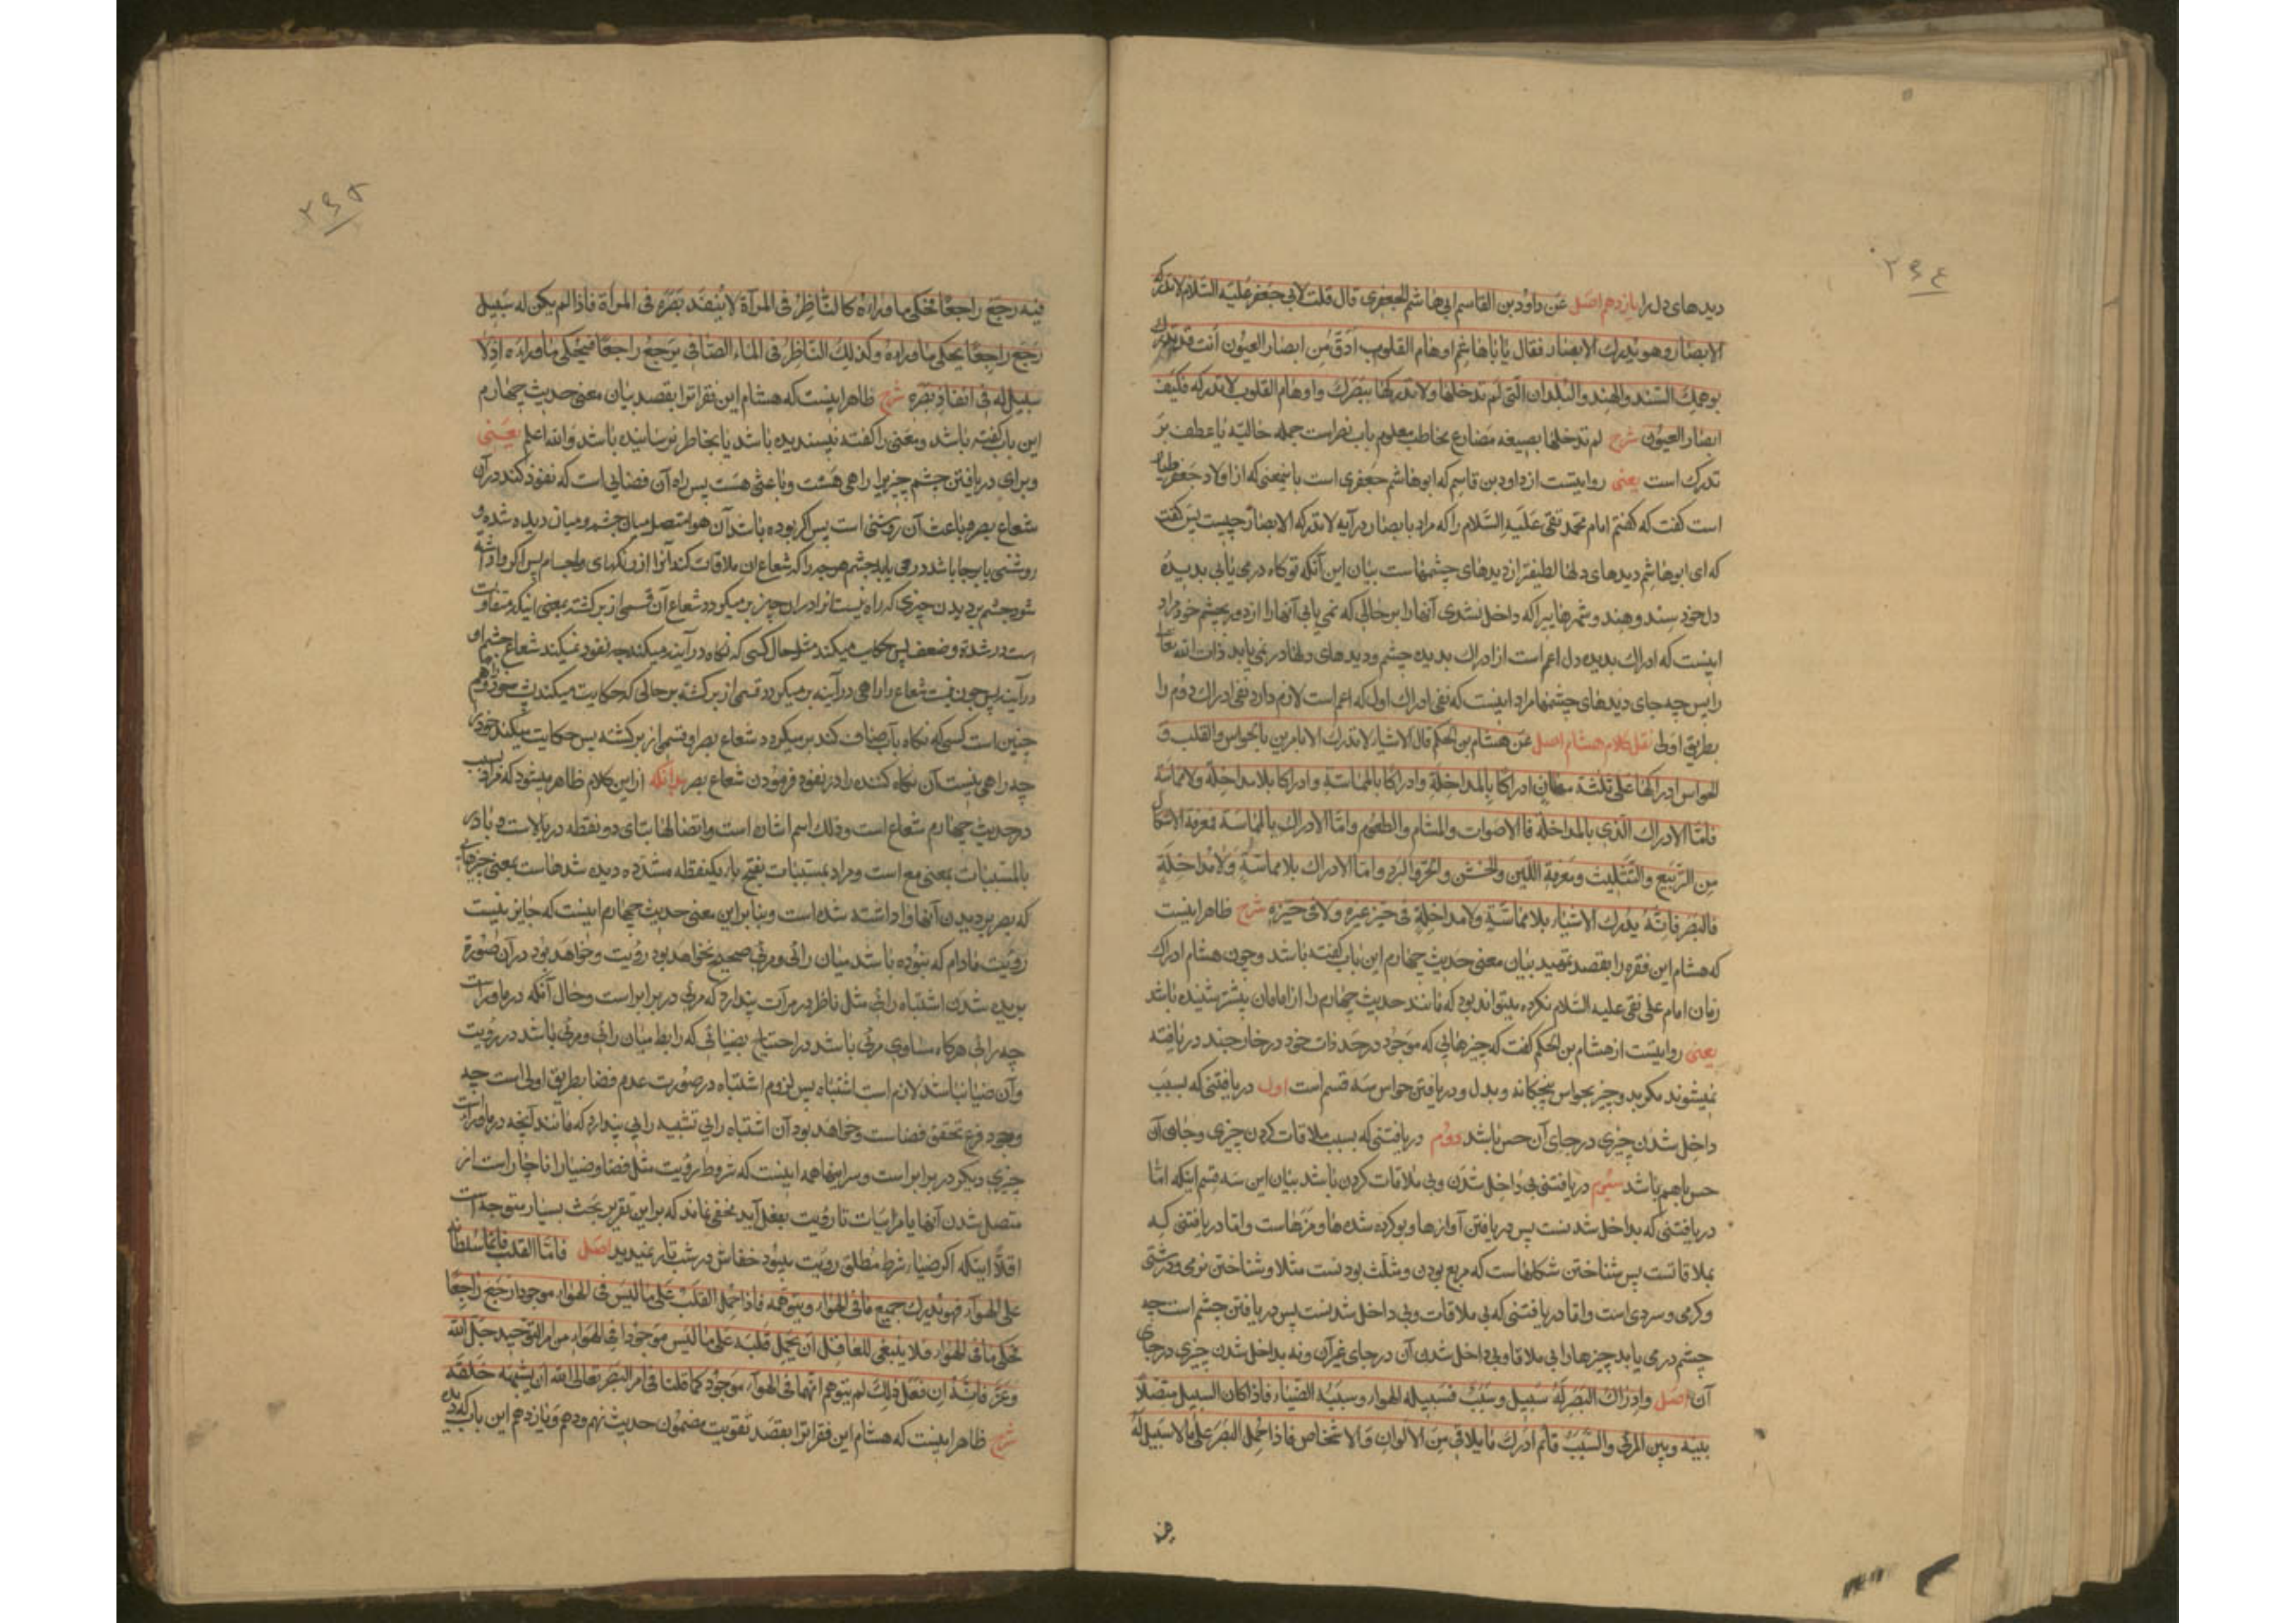 ۳۶۴
دیدهای دل را یازدهم اصل عَن داوُد بن القاسم ابی هاشم الجعفری قال قلت لابی جَعفر عَلیَه السَّلام لا تدرکه
الابصَار وهو یُدرك الابصَار فقال یَا بَا هَاشِم اوهَام القلوب اَدَقّ مِن ابصَار العیُون اَنت قد تدرك
بوهمِكَ السّند والهِند والبُلدان الّتی لَم تدخلهَا ولا تدرکهَا ببَصَرك واوهَام القلوب لا تدرکه فکَیفَ
ابصَار العیُون شرح لم تدخلها بصیغه مَضارع مخاطب معلوم باب نصر است جمله حَالیّه یا عطف بَر
تدرك است یعنی روایتست از داود بن قاسم که ابو هاشم جَعفری است باینمعنی که از اولاد جَعفر طیّار
است کفت که کفتم امام محمّد تقی عَلَیَه السَّلام را که مراد بابصَار در آیه لا تدرکه الابصَار چیست پس کفت
که ای ابو هَاشِم دیدهای دلهَا لطیفتر از دیدهای چشمهاست بیَان این آنکه تو کاه درمی یَابی بدیدهٔ
دل خود سِند وهِند وشهرهَایی را که داخل نشدی آنها را بر حَالی که نمی یابی آنها را از دور بچشم خود مراد
اینست که ادراك بدیده دل اعم است از ادراك بدیده چشم ودیدهای دلها در نمی یابد ذات الله تعَالی
را پس چه جای دیدهای چشمها مراد اینست که نفی ادراك اول که اعم است لازم دارد نفی ادراك دوُم را
بطریق اولی نقل کلام هشام اصل عَن هشَام بن الحکم قال الاشیَاء لا تدرك الا بامرین بالحوَاس والقلب وَ
الحواس ادراکهَا علی ثلثة معَانٍ ادراکا بالمدَاخلةِ وادراکا بالممَاسّةِ وادراکا بلا مداخِلَة ولا ممَاسّة
فامّا الادراك الّذی بالمداخلة فالاصوات والمشَام والطعُوم وامّا الادراك بالممَاسّة فمعرفة الاشکال
مِن التّربیع والتّثلِیث ومَعرفة اللیّن والخَشن والحَرّ والبَرد وامّا الادراك بلا ممَاسّةٍ وَلا مدَاخلةٍ
فالبَصَر فَانّه یُدرك الاشیَاء بلا ممَاسّةٍ ولا مداخلةٍ فی حَیّز غیره ولا فی حَیّزهِ شرح ظاهر اینست
که هشام این فقره را بقصد تمهید بیَان معنی حدیث چهَارم این بَاب کفته باشد وچون هشام ادراك
زمان امام علی نقی علیه السّلام نکرده میتواند بود که مَانند حدیث چهارم را از امامان پیشتر شنیده باشد
یعنی روایتست از هشام بن الحکم کفت که چیزهائی که موَجُود در حَد ذات خود در خارجند دریافته
نمیشوند مکر بدو چیز بحواس پنجکانه وبدل ودریافتن حواس سَه قسم است اول دریافتنی که بسبَب
داخل شدَن چیزی در جای آن حس باشد دوُم دریافتنی که بسبب ملاقات کردن چیزی وجای آن
حس باهم باشد سیُوم دریافتنی بی داخل شدَن وبی ملاقات کردن باشد بیَان این سَه قسم اینکه امّا
دریافتنی که بداخل شدنست پس دریافتن آوازها وبو کرده شده ها ومَزهَاست وامّا دریافتنی که
بملاقاتست پس شناختن شکلهاست که مربع بودن ومثلّث بودنست مثلا وشناختن نرمی ودرشتی
وکرمی وسردی است وامّا دریافتنی که بی ملاقات وبی داخل شدنست پس دریافتن چشم است چه
چشم درمی یابد چیزها را بی ملاقات وبی داخل شدن آن در جای غیر آن ونه بداخل شدن چیزی در جای
آن اصل وادرَاك البَصَر لهُ سَبیل وسَبَبٌ فسَبیله الهوَاء وسبَبُه الضّیَاء فاذا کان السبیل متّصلاً
بینَه وبین المرئی والسّبَبُ قائم اَدرَك مَا یلاقی مِنَ الاَلوانِ وَالاَشخاص فاذا حُمِل البَصَر عَلی مَا لا سَبیل لَهُ
فیه
۳۶۵
فیه رجَعَ راجعًا فحکی مَا ورَاءَه کالنّاظِر فی المرآة لا یُنفَذ بَصَره فی المرآة فاذا لم یکن له سَبیل
رَجَعَ راجعًا یحکی مَا ورَاءهُ وکذلِكَ النّاظِر فی المَاء الصّافی یَرجَعُ راجعًا فیَحکی مَا ورَاءَه اذ لا
سَبیل له فی انفاذ بَصَره شرح ظاهر اینست که هشام این فقرات را بقصد بیَان معنی حدیث چهارم
این باب کفته باشد ومَعنی را کفته پسندیده باشد یا بخاطر نرسانیده باشد والله اعلم یعَنی
وبرای دریافتن چشم چیز را راهی هَست وباعثی هَست پس راه آن فضایی است که نفوذ کند در آن
شعاع بصر وباعث آن روشنی است پس اکر بوده باشد آن هوا متصل میان چشم ومیان دیده شده و
روشنی پا برجا باشد درمی یابد چشم هر چه را که شعاع ان ملاقات کند آنرا از رنکهای واجسام پس اکر واداشته
شود چشم بر دیدن چیزی که راه نیست او را در ان چیز بر میکردد شعاع آن قسمی از بر کشتن بمعنی اینکه متفاوت
است در شدّة وضعف پس حکایت میکند مثل حال کسی که نکاه در آینه میکند چه نفوذ نمیکند شعاع چشم او
در آینه پس چون نیست شعاع او را راهی در آینه بر میکردد قسمی از بر کشتن بر حالی که حکایت میکند پشت خود را وهم
چنین است کسی که نکاه بآب صاف کند بر میکردد شعاع بصر او قسمی از بر کشتن پس حکایت میکند خود را
چه راهی نیست آن نکاه کننده را در نفوذ فرمُودن شعاع بصر بدانکه از این کلام ظاهر میشود که مراد بسبب
در حدیث چهارم شعاع است وذلك اسم اشاره است واتصالها بتای دو نقطه در بالاست وبا در
بالمسببَات بمعنی مع است ومراد بمسببَات بفتح باء یکنقطه مشدّده دیده شدهاست بمعنی چیزهائی
که بصر بر دیدن آنها واداشته شده است وبنابر این معنی حدیث چهارم اینست که جایز نیست
رؤیت مادام که نبوُده باشد میَان رائی ومرئی صحیح نخواهد بود رؤیت وخواهد بود در آن صُورَة
بریده شدَن اشتباه رائی مثل ناظر در مرآت پندارد که مرئی در برابر است وحال آنکه در ماوراست
چه رائی هرکاه مساوی مرئی باشد در احتیاج بضیائی که رابط میان رائی ومرئی باشد در رؤیت
وآن ضیا نباشد لازم است اشتباه پس لزوم اشتباه در صُورت عدم فضا بطریق اولی است چه
وجود فرع تحقق فضاست وخواهد بود آن اشتباه رائی تشبیه رائی پندارد که مَانند آنچه در ماوراست
چیزی دیکر در برابر است وسر اینها همه اینست که شروط رؤیت مثل فضا وضیا را ناچار است از
متصل شدن آنها با مرئیات تا رؤیت بفعل آید مخفی نماند که بر این تقریر بحث بسیار متوجه است
اقلّاً اینکه اکر ضیاء شرط مُطلق رؤیت میبود خفاش در شب تار نمیدید اصل فامّا القلب فانّما سُلطانه
علی الهوآء فهو یُدرك جمیع مَا فی الهوَاء ویتوَهّمه فاذا حمل القلبُ عَلی مَا لیَس فی الهَواء موجودا رَجَع رَاجعًا
فحَکی مَا فی الهوَاء فلا یَنبغی للعَاقِل اَن یَحمِل قلبَه عَلی مَا لیَس مَوجُودا فی الهَوَاء من امر التوحید جَلّ الله
وعَزّ فَانّه اِن فعَل ذلِكَ لم یتوهم الا مَا فی الهوآء مَوجُود کمَا قلنا فی امر البَصَر تعالی الله اَن یشبهه خلقه
شرح ظاهر اینست که هشام این فقرات را بقصَد تقویت مضمُون حدیث نهم ودهم ویازدهم این باب